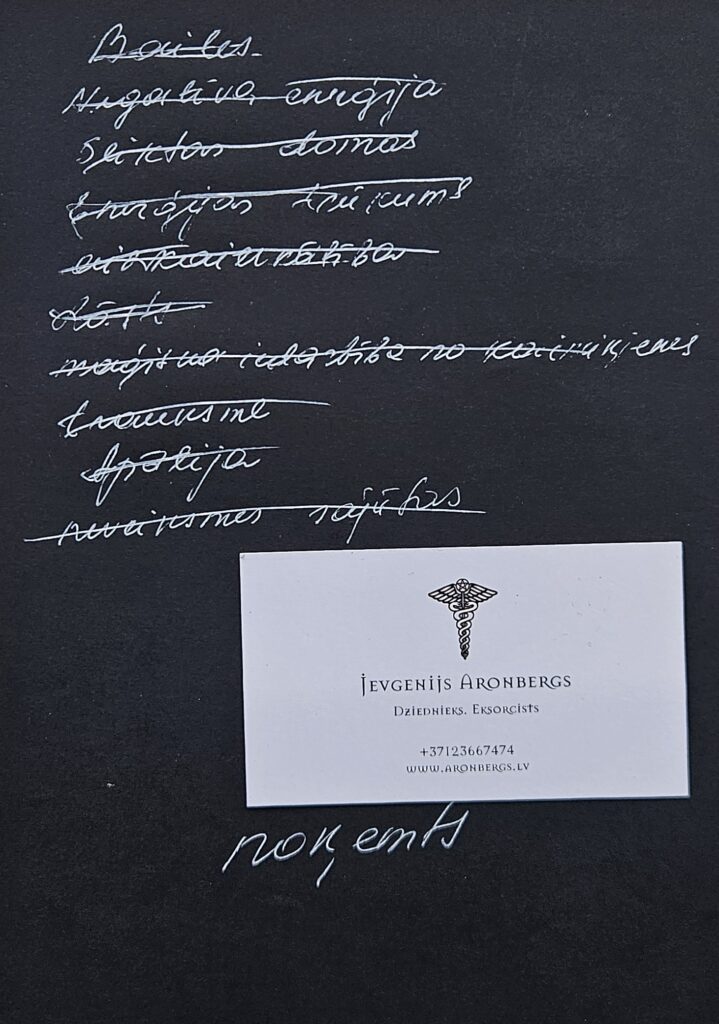 Bailes.
Negatīva enerģija
Sliktas domas
Enerģijas trūkums
Lāsts
maģiska iedarbība no
trauksme
Apātija
neveiksmes sajūtas
Jevgenijs Aronbergs
Dziednieks. Eksorcists
+37123667474
www.aronbergs.lv
noņemts